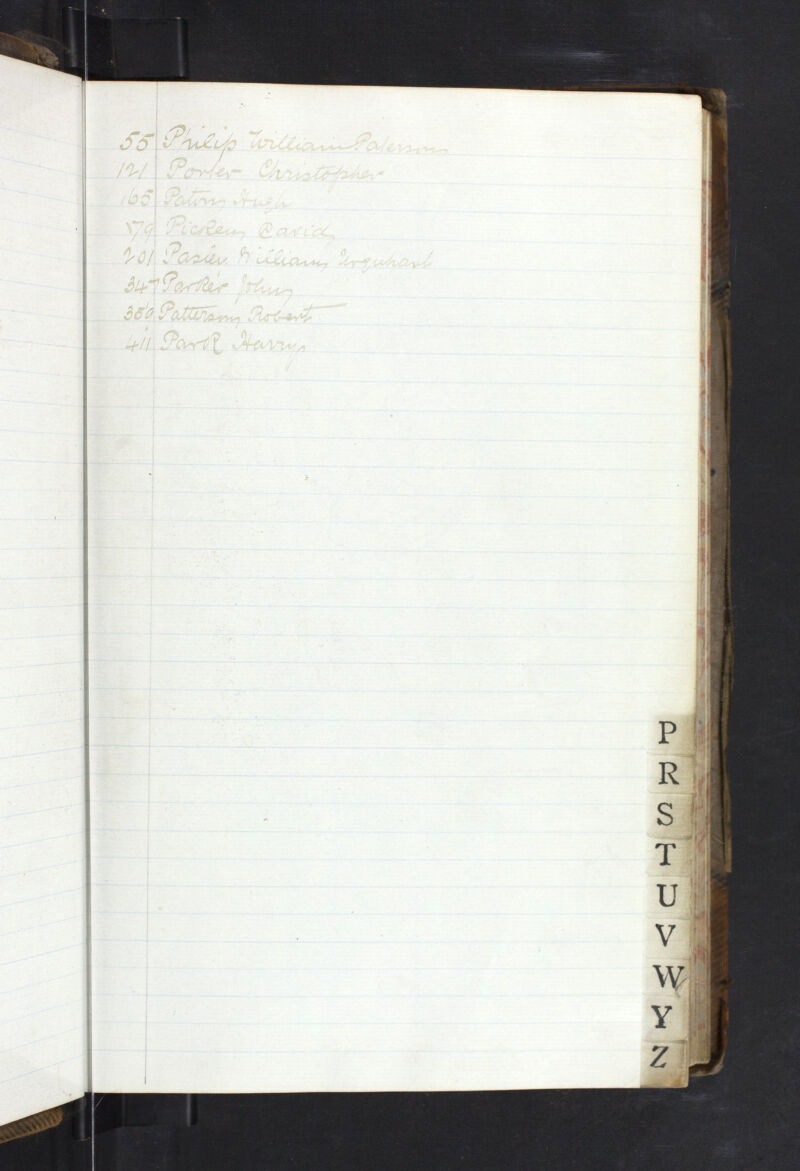 55 Philip William Paterson
121 Porter Christopher
165 Paton Hugh
179 Picken David
201 William Urquhart
347 Parker John
359 Patterson Robert
411 Park Harry
P
R
S
T
U
V
W
Y
Z